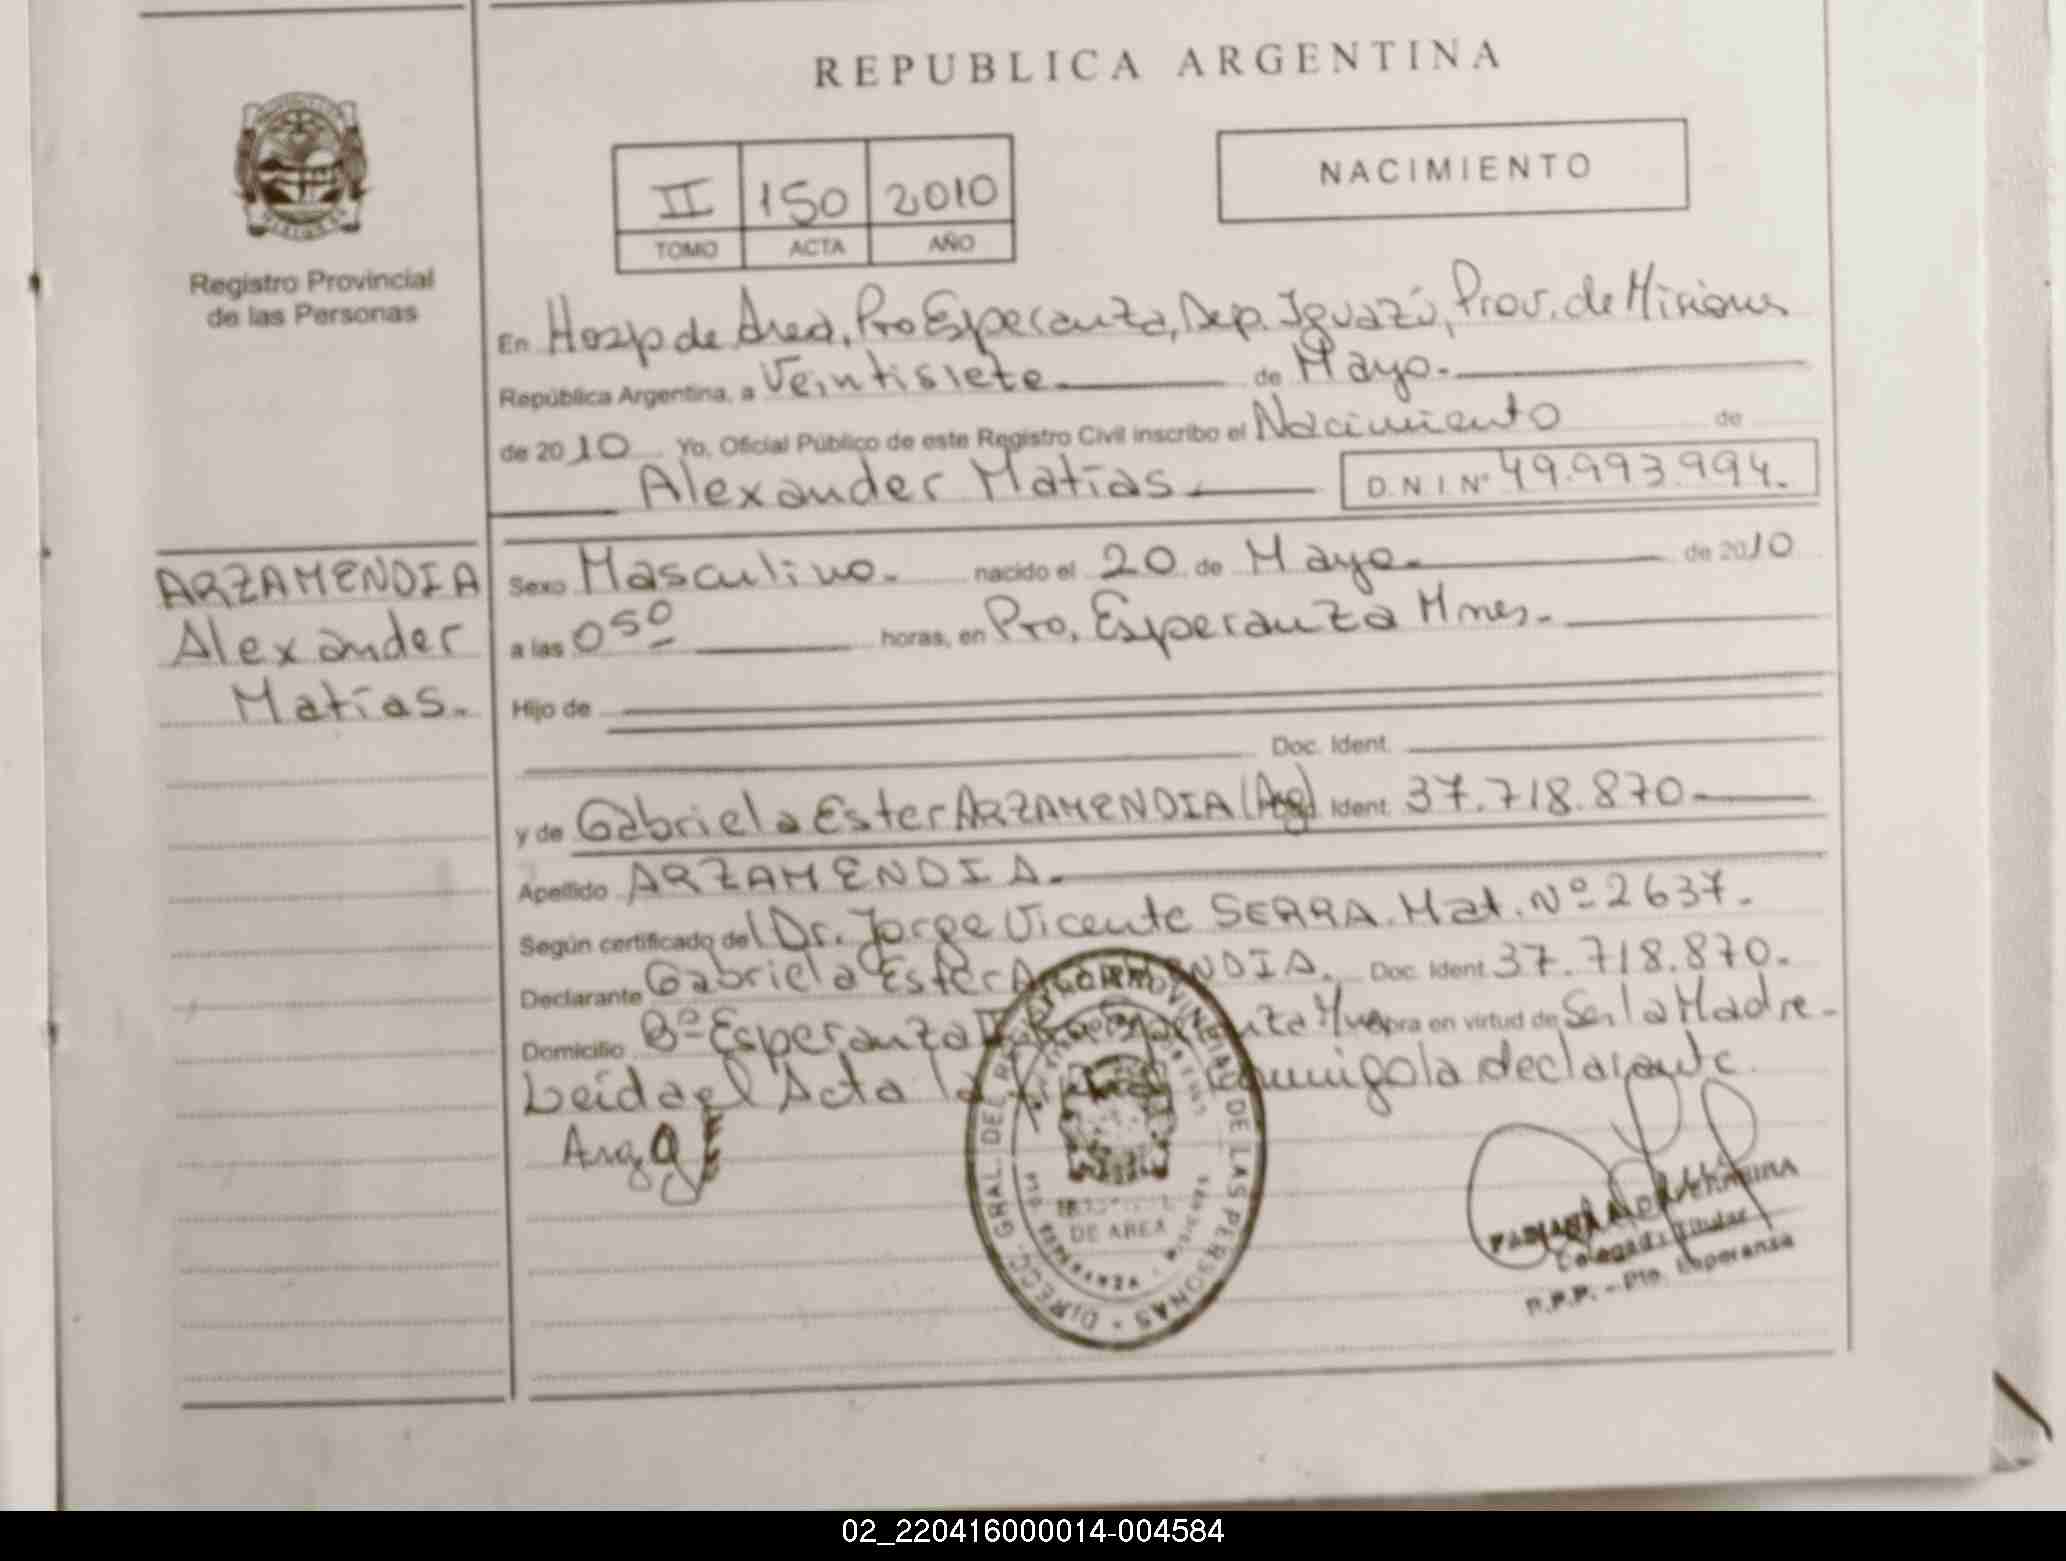 REPUBLICA ARGENTINA
II 150 2010
TOMO ACTA AÑO
NACIMIENTO
Registro Provincial
de las Personas
En Hosp de Area, Pto Esperanza, Dep. Iguazú, Prov. de Misiones
República Argentina, a Veintisiete de Mayo.
de 2010 Yo, Oficial Público de este Registro Civil inscribo el Nacimiento de
Alexander Matías. D.N.I. Nº 49.993.994.
ARZAMENDIA
Alexander
Matías.
Sexo Masculino. nacido el 20 de Mayo. de 2010
a las 05º horas, en Pto. Esperanza Mnes.
Hijo de
Doc. Ident.
y de Gabriela Ester ARZAMENDIA (Arg) Ident. 37.718.870
Apellido ARZAMENDIA.
Según certificado del Dr. Jorge Vicente SERRA. Mat. Nº 2637.
Declarante Gabriela Ester ARZAMENDIA. Doc. Ident. 37.718.870.
Domicilio Bº Esperanza obra en virtud de Ser la Madre.
Leída el Acta la conmigo la declarante.
DIRECC. GRAL. DEL REGISTRO PROVINCIAL DE LAS PERSONAS
DE AREA
Titular
R.P.P. - Pto. Esperanza
02_220416000014-004584